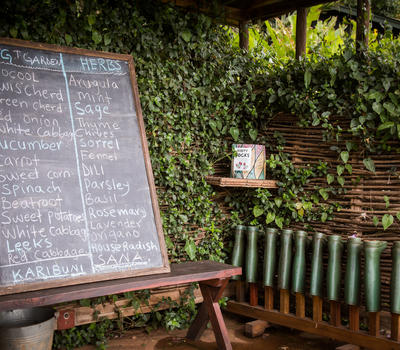 GT GARDEN HERBS
OCOOL Arugula
WIS Cherd mint
reen cherd Sage
ed Onion Thyme
White Cabbage Chives
ucumber Sorrel
Carrot Fennel
Sweet corn Dill
Spinach Parsley
Beatroot Basil
Sweet Potatoes Rosemary
White Cabbag Lavender
Leeks Oregano
Red Cabbage House Radish
KARIBUNI SANA
SOCKS